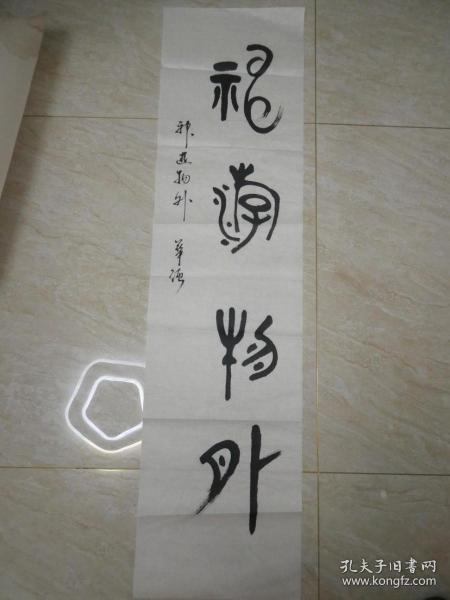 神游物外
神游物外 华强
孔夫子旧书网
www.kongfz.com